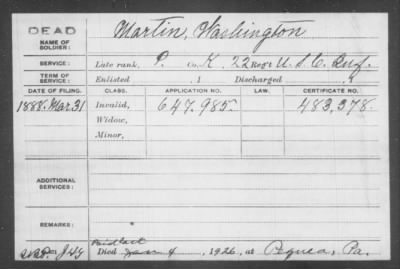 DEAD
NAME OF SOLDIER: Martin, Washington
SERVICE: Late rank, P. Co. K, 22 Reg't U. S. C. Inf.
TERM OF SERVICE: Enlisted , 1 Discharged , 1
DATE OF FILING. CLASS. APPLICATION NO. LAW. CERTIFICATE NO.
1888. Mar. 31 Invalid, 647.985. 483,378.
Widow,
Minor,
ADDITIONAL SERVICES:
REMARKS:
Paid last
Died Jan 4, 1926, at Pequea, Pa.